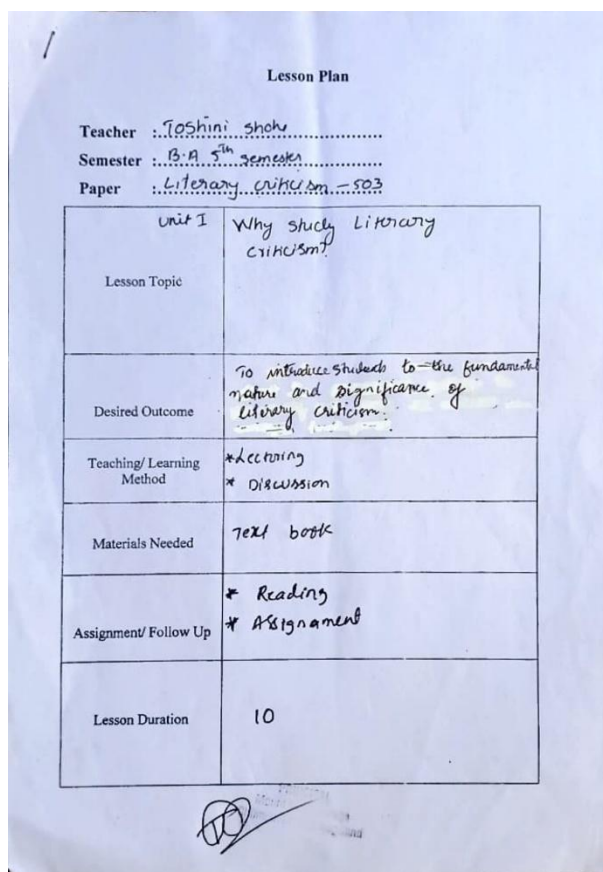 1
Lesson Plan
Teacher : Toshini Shohe
Semester : B.A 5th semester
Paper : Literary criticism - 503
Unit I
Lesson Topic
Why study Literary
criticism?
Desired Outcome
To introduce students to the fundamental
nature and significance of
literary criticism.
Teaching/ Learning
Method
*Lecturing
* Discussion
Materials Needed
Text book
Assignment/ Follow Up
* Reading
* Assignament
Lesson Duration
10